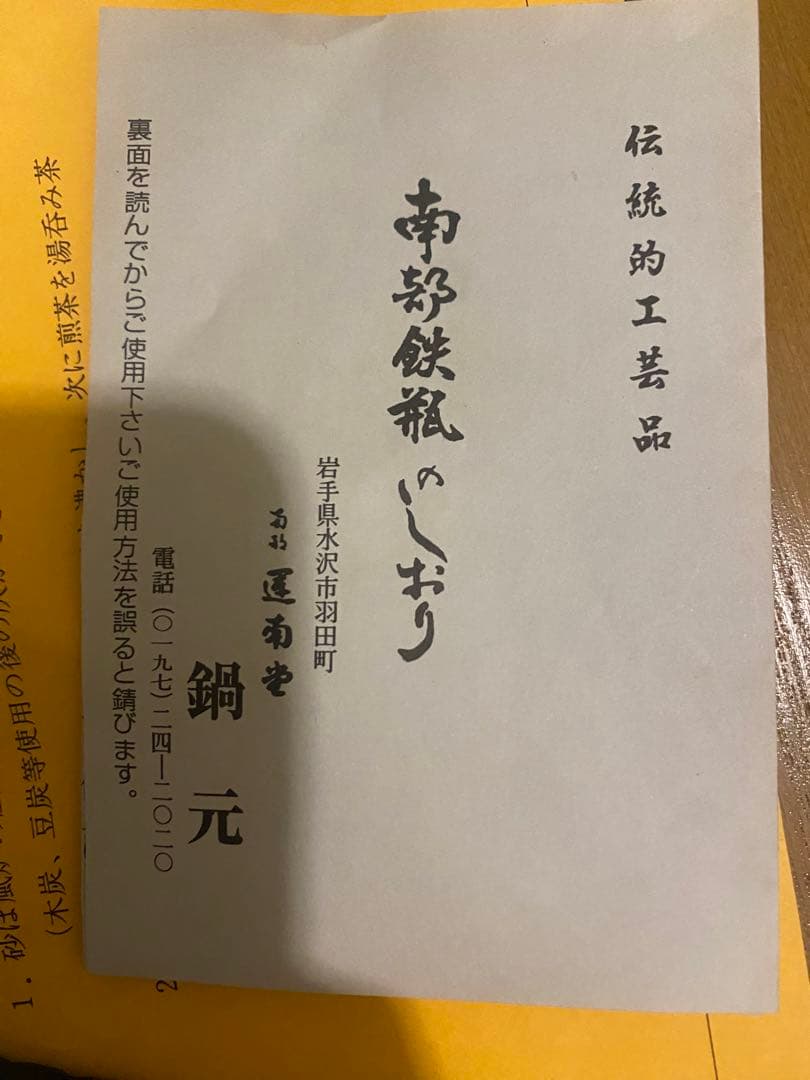 伝統的工芸品
南部鉄瓶のしおり
岩手県水沢市羽田町
南部 運南堂
鍋元
電話(〇一九七)二四―二〇二〇
裏面を読んでからご使用下さいご使用方法を誤ると錆びます。
次に煎茶を湯呑み茶
1.砂は
(木炭、豆炭等使用の後の
2